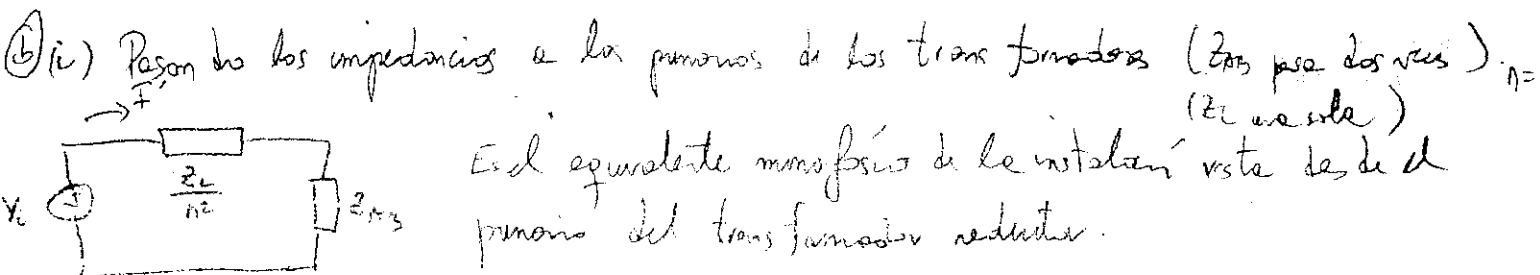 b) (i) Pasando las impedancias a los primarios de los transformadores (Z_AB pasa dos veces). n=
(Z_L una sola)
I'
Z_L/n²
V_i
Z_AB
Es el equivalente monofásico de la instalación vista desde el
primario del transformador reductor.